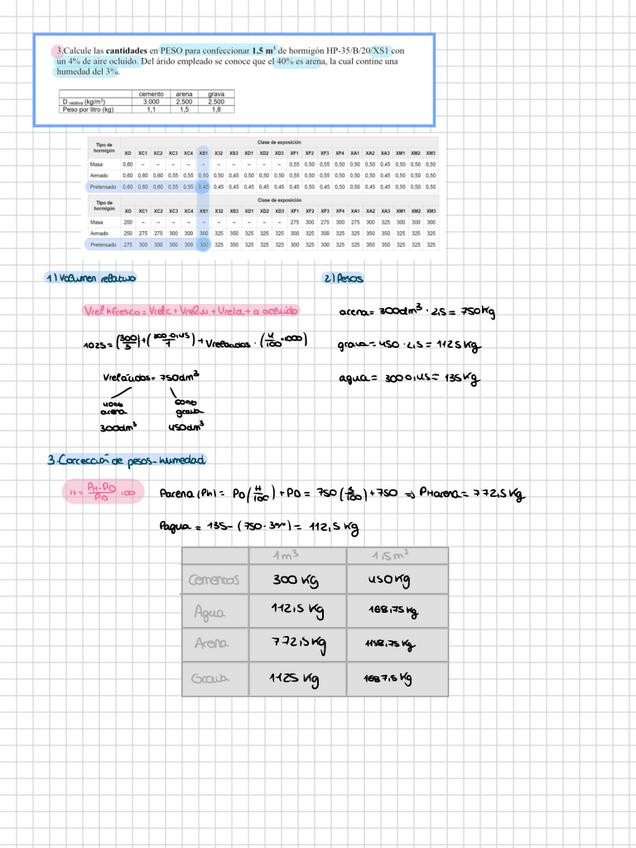 3.Calcule las cantidades en PESO para confeccionar 1,5 m³ de hormigón HP-35/B/20/XS1 con
un 4% de aire ocluido. Del árido empleado se conoce que el 40% es arena, la cual contine una
humedad del 3%.
cemento arena grava
D relativa (kg/m³) 3.000 2.500 2.500
Peso por litro (kg) 1,1 1,5 1,6
Tipo de hormigón Clase de exposición
X0 XC1 XC2 XC3 XC4 XS1 XS2 XS3 XD1 XD2 XD3 XF1 XF2 XF3 XF4 XA1 XA2 XA3 XM1 XM2 XM3
Masa 0,60 - - - - - - - - - - 0,55 0,50 0,55 0,50 0,50 0,50 0,45 0,50 0,50 0,50
Armado 0,60 0,60 0,60 0,55 0,55 0,50 0,50 0,45 0,50 0,50 0,50 0,55 0,50 0,55 0,50 0,50 0,50 0,45 0,50 0,50 0,50
Pretensado 0,60 0,60 0,60 0,55 0,55 0,45 0,45 0,45 0,45 0,45 0,45 0,55 0,50 0,55 0,50 0,50 0,45 0,45 0,50 0,50 0,50
Tipo de hormigón Clase de exposición
X0 XC1 XC2 XC3 XC4 XS1 XS2 XS3 XD1 XD2 XD3 XF1 XF2 XF3 XF4 XA1 XA2 XA3 XM1 XM2 XM3
Masa 200 - - - - - - - - - - 275 300 275 300 275 300 325 300 300 300
Armado 250 275 275 300 300 300 325 350 325 325 325 300 325 300 325 325 350 350 325 325 325
Pretensado 275 300 300 300 300 300 325 350 325 325 325 300 325 300 325 325 350 350 325 325 325
1) Volumen relativo
Vrel hfresco = Vrelc + Vrelw + Vrela + a ocluido
1025 = (300/3) + (300·0,45/1) + Vreláridos · (4/100 · 1000)
Vreláridos = 750dm³
40% arena 60% grava
300dm³ 450dm³
2) Pesos
arena = 300dm³ · 2,5 = 750Kg
grava = 450 · 2,5 = 1125Kg
agua = 300·0,45 = 135Kg
3. Corrección de pesos - humedad
H = PH-PD/PD · 100
Parena (Ph) = PD(H/100) + PD = 750(3/100) + 750 => PHarena = 772,5Kg
Pagua = 135 - (750 · 3%) = 112,5 Kg
1m³ 1,5m³
Cementos 300 Kg 450Kg
Agua 112,5 Kg 168,75 Kg
Arena 772,5Kg 1158,75 Kg
Grava 1125 Kg 1687,5 Kg